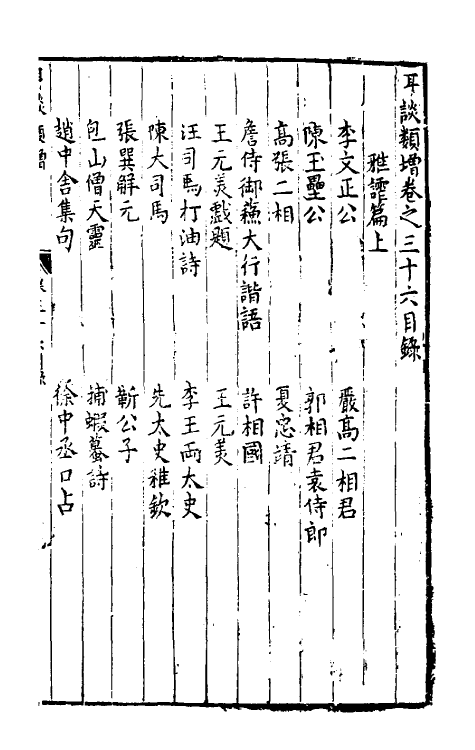 耳談類增卷之三十六目錄
雅謔篇上
李文正公　嚴高二相君
陳玉壘公　郭相君袁侍郎
高張二相　夏忠靖
詹侍御蘓大行諧語　許相國
王元美戲題　王元美
汪司馬打油詩　李王両太史
陳大司馬　先太史雅歓
張巽解元　靳公子
包山僧天靈　捕蝦蟇詩
趙中舍集句　徐中丞口占
耳談類增　卷三十六目錄